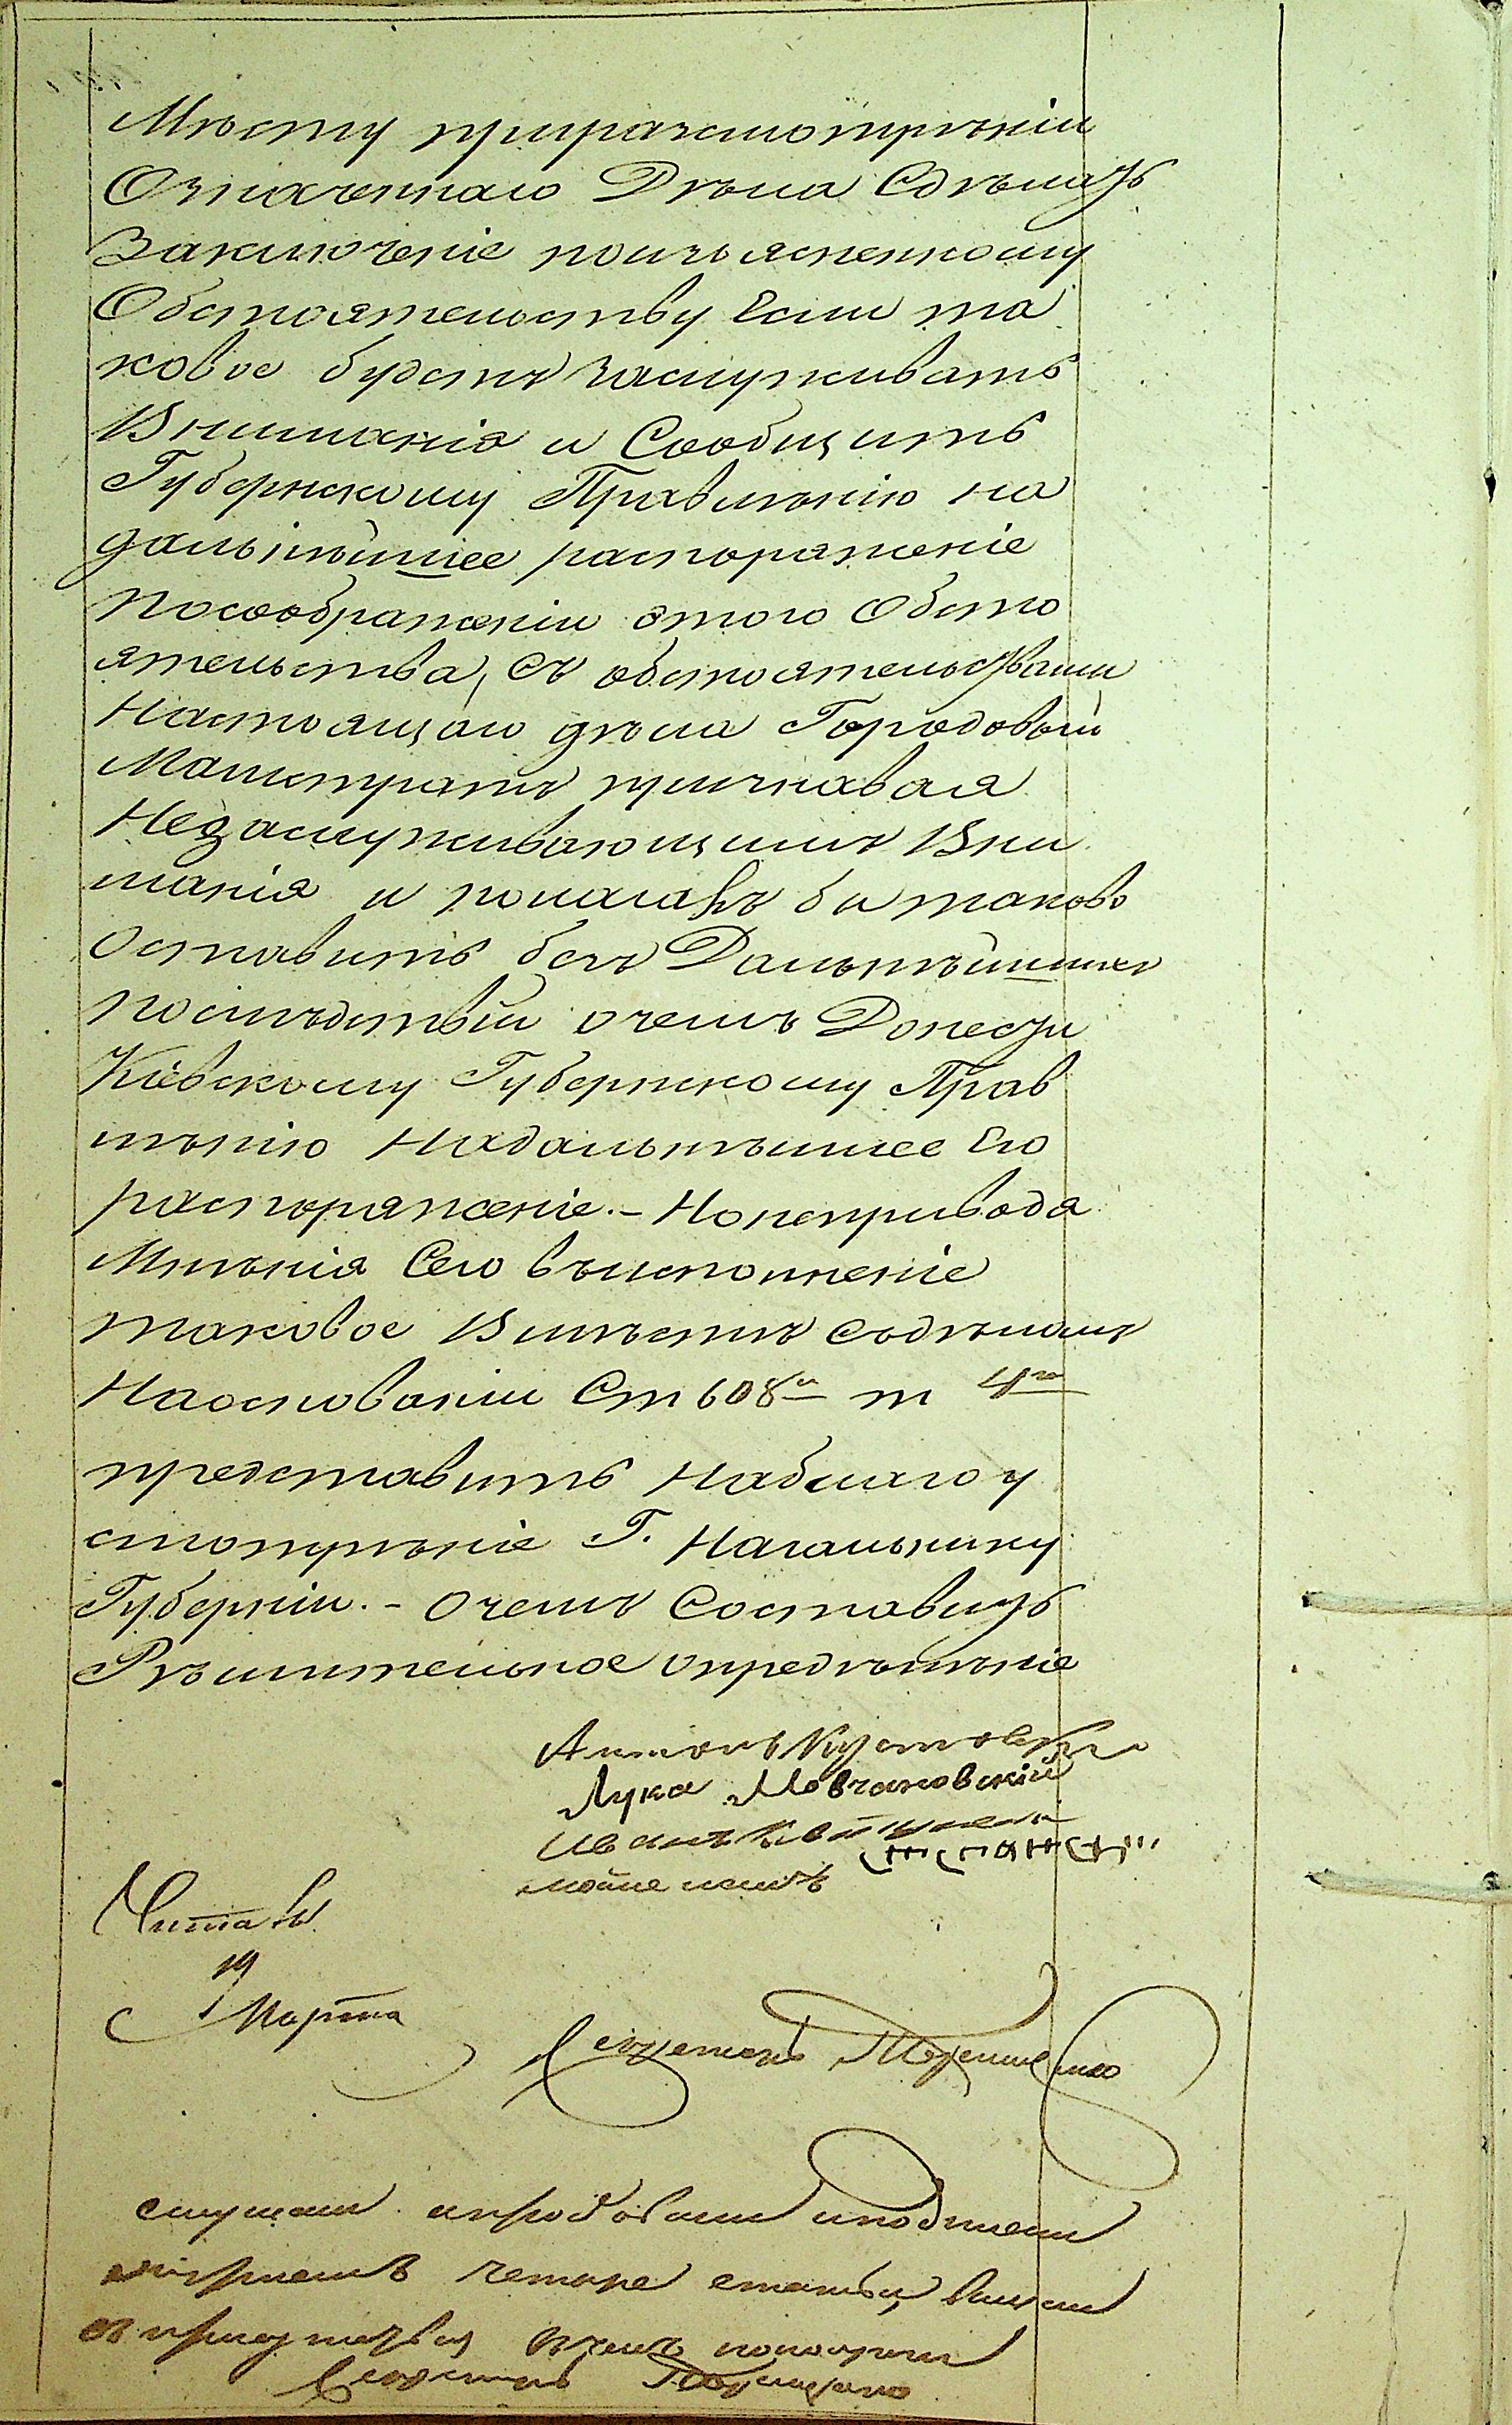 Мѣсту приразсмотрѣніи
Означеннаго Дѣла Сдѣлать
Заключеніе поизъясненному
Обстоятельству Если та
ковое будетъ заслуживать
Вниманія и Сообщить
Губернскому Правленію на
дальнѣйшее распоряженіе
посоображеніи этого Обсто
ятельства, съ обстоятельствами
Настоящаго дѣла Городовый
Магистратъ признавая
Незаслуживающимъ Вни
манія и полагалъ бы таково
Оставить безъ Дальнѣйшихъ
послѣдствій очемъ Донести
Кіевскому Губернскому Прав
лѣнію Надальнѣшее Его
распоряженіе. – Нонеприводя
Мнѣнія Сего въисполненіе
таковое Вмѣстѣ съдѣломъ
Наоснованіи Ст 608й т 4го
представить Наблагоу
смотрѣніе Г. Начальнику
Губерніи. – Очемъ Составить
Рѣшительное опредѣлѣніе
Антонъ
Лука Мовчановскій
Иванъ
Читалъ
19
Марта
Секретарь
слушали
четыре статьи